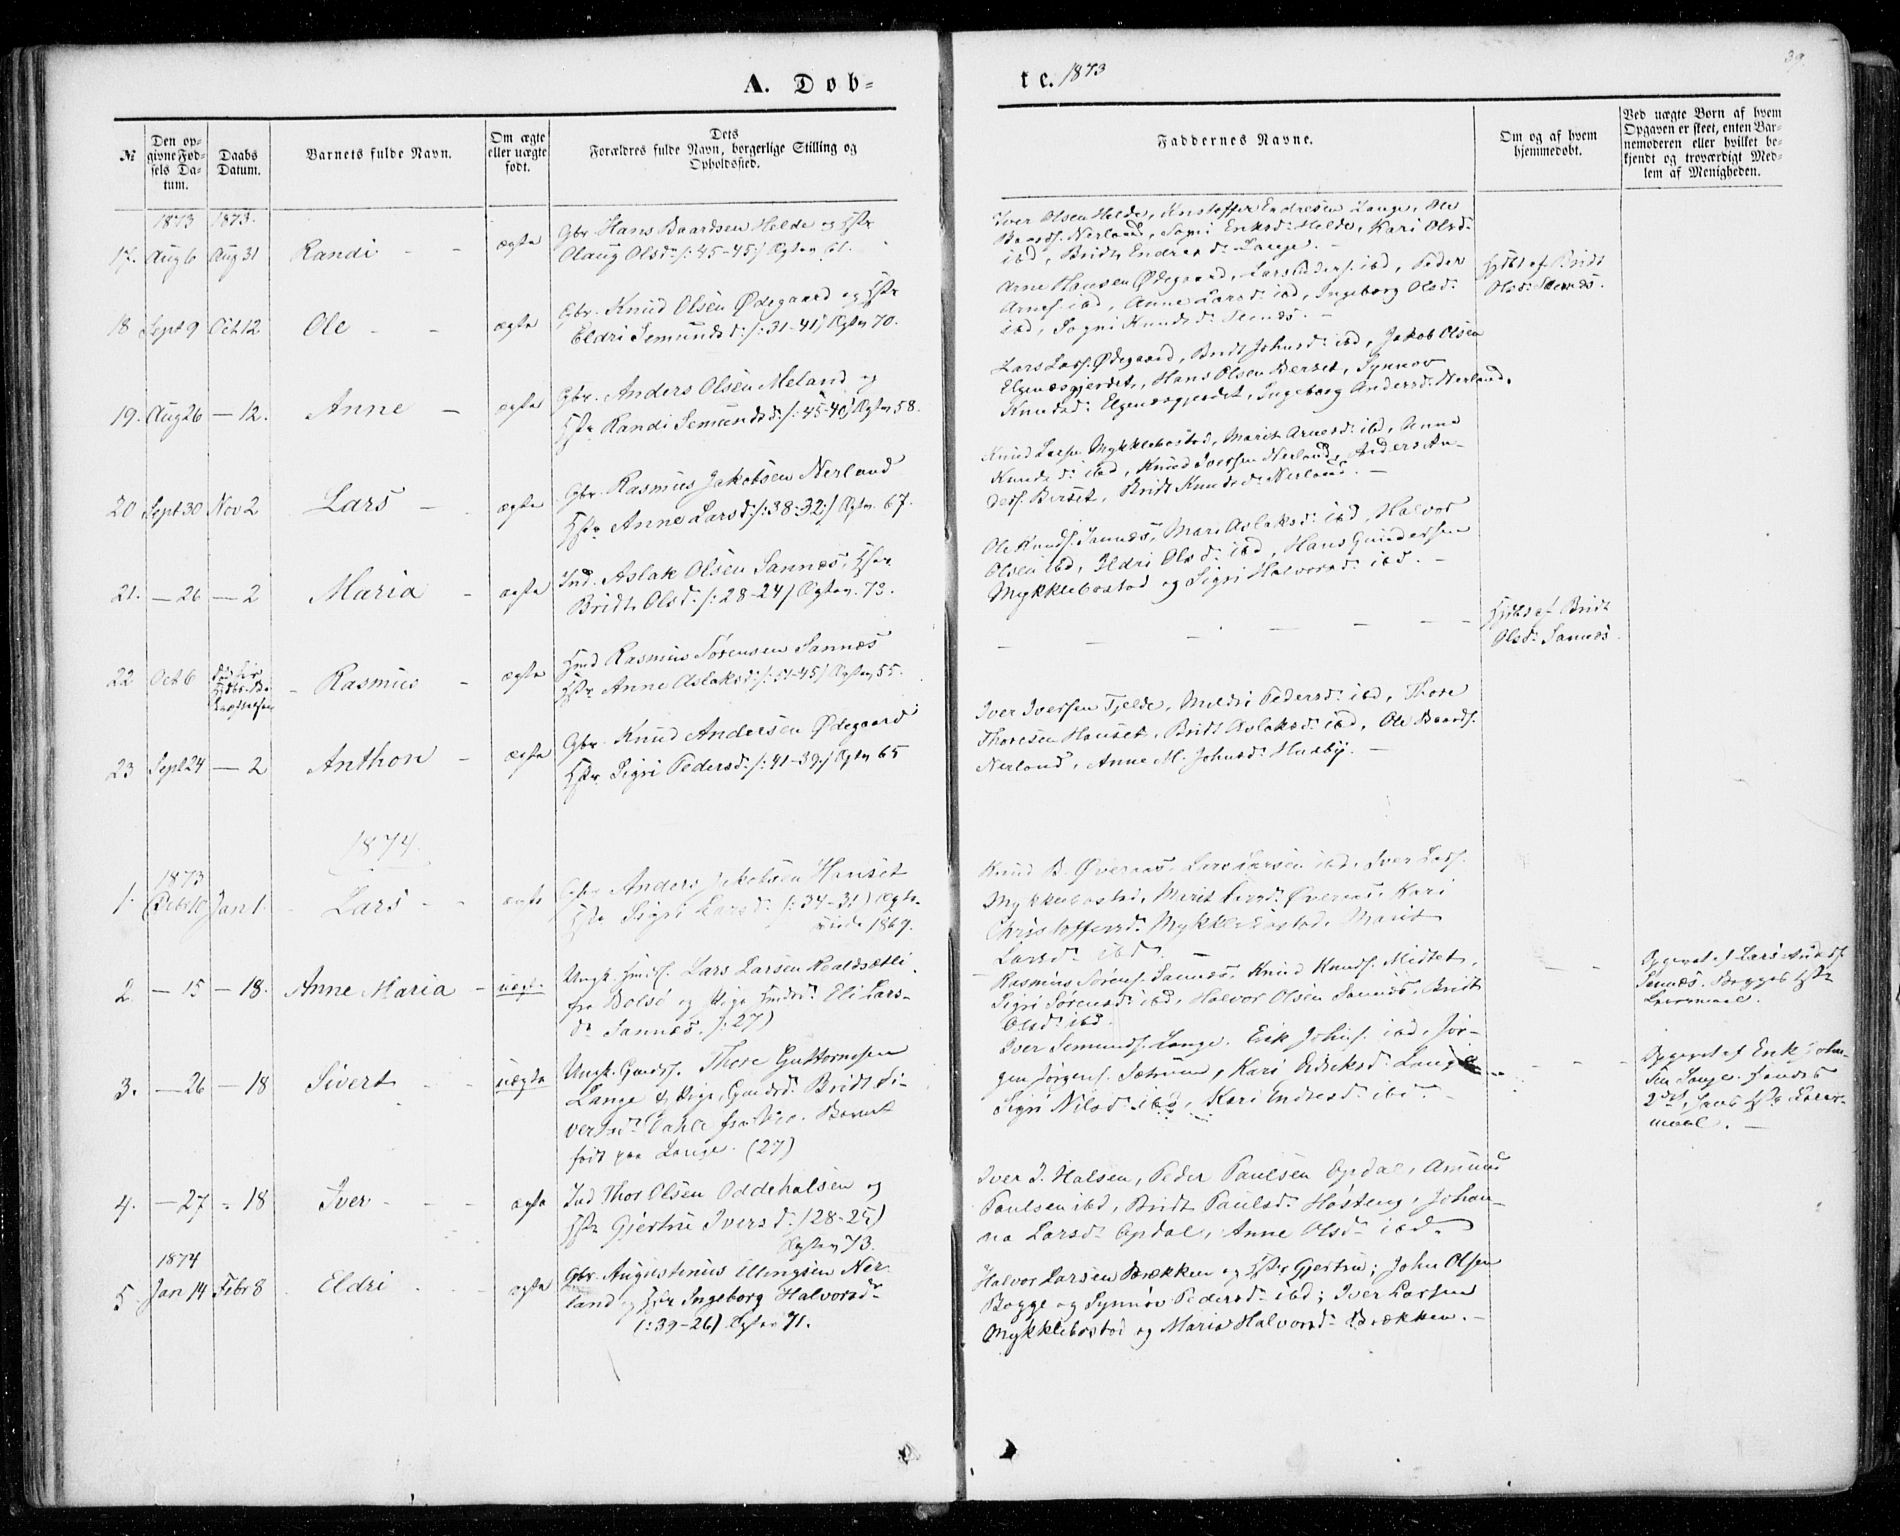 39.
A. Dob-
te. 1873
№
Den op-
givne Fød-
sels Da-
tum.
Daabs
Datum.
Barnets fulde Navn.
Om ægte
eller uægte
født.
Dets
Forældres fulde Navn, borgerlige Stilling og
Opholdssted.
Faddernes Navne.
Om og af hvem
hjemmedøbt.
Ved uægte Børn af hvem
Opgaven er skeet, enten Bar-
nemoderen eller hvilket be-
kjendt og troværdigt Med-
lem af Menigheden.
1873 1873.
17. Aug 6 Aug 31 Randi - - ægte
Gbr. Hans Baardsen Helde og Hstr
Olaug Olsd: /:45-45/ Ægtev. 61.
Iver Olsen Helde, Kristoffer Endresen Lange, Ole
Baards. Nerland, Sigri Eriksd: Helde, Kari Olsd:
ibd, Bridt Endresd: Lange. -
18 Sept 9 Oct 12 Ole - - ægte
Gbr. Knud Olsen Ødegaard og Hstr
Eldri Semundsd: /:31-41/ Ægtev 70.
Arne Hansen Ødegaard, Lars Peders. ibd, Peder
Arnes. ibd, Anne Larsd: ibd, Ingeborg Olsd:
ibd, Sigri Knudsd: -
Hjdbt af Bridt
Olsd:
19. Aug 26 - 12. Anne - ægte
Gbr. Anders Olsen Meland og
Hstr Randi Semundsd: /:45-40/ Ægtev 58.
Lars Lars. Ødegaard, Bridt Johnsd: ibd, Jakob Olsen
Elgenæsgjerdet, Hans Olsen Berset, Synnøv
Knudsd: Elgenæsgjerdet, Ingeborg Andersd: Nerland.
20 Sept 30 Nov 2 Lars - ægte
Gbr. Rasmus Jakobsen Nerland
Hstr Anne Larsd: /:38-32:/ Ægtev. 67.
Knud Larsen Mykklebostad, Marit Arnesd: ibd, Anne
Knudsd: ibd, Knud Iversen Nerland, Anders An-
ders. Berset, Bridt Knudsd: Nerland. -
21. - 26 - 2 Maria - ægte
Ind. Aslak Olsen Sannæs, Hstr.
Bridt Olsd: /:28-24/ Ægtev. 73.
Ole Knuds. Sannæs, Mari Aslaksd: ibd, Halvor
Olsen ibd, Eldri Olsd: ibd, Hans Gundersen
Mykklebostad og Sigri Halvorsd: ibd. -
22 Oct 6 - Rasmus - ægte
Hmd Rasmus Sørensen Sannæs
Hstr Anne Aslaksd: /:51-45/ Ægtev 55.
- - - - - -
Hjdbt af Bridt
Olsd: Sannæs.
23 Sept 24 - 2 Anthon - ægte
Gbr. Knud Andersen Ødegaard
Hstr Sigri Pedersd: /:41-39:/ Ægtev 65
Iver Iversen Tjelde, Meldri Pedersd: ibd, Thore
Thoresen Hauset, Bridt Aslaksd: ibd, Ole Baards.
Nerland, Anne M. Johnsd: Husby. -
1874.
1873
1. Jan 1. - Lars - - ægte
Gbr Anders Jakobsen Hauset
Hstr Sigri Larsd: /:34-31/ Ægte-
1869.
Knud B. Øveraas, Lars Larsen ibd, Iver Lars.
Mykklebostad, Marit Øveraas, Kari
Christoffersd: Mykklebostad, Marit
Larsd: ibd.
2 - 15 - 18. Anne Maria - uægte
Ungk. Lars Larsen
fra Bolsø og Pige Eli Lars-
dr Sannæs. /:27/
Rasmus Sørens. Sannæs, Knud Knuds. Midtet,
Sigri Sørensd: ibd, Halvor Olsen Sannæs, Bridt
Olsd: ibd.
- -
Opgivet af Lars
Sannæs. Begges 1ste
Leiermaal.
3. - 26 - 18 Sivert - - uægte
Ungk. Thore Guttormsen
Lange & Pige, Bridt Si-
vertsdr Dahle fra Barnet
født paa Lange. (27)
Iver Semunds. Lange, Erik Johns. ibd, Jør-
gen Jørgens. Sætrum, Kari Lange
Sigri Nilsd: ibd, Kari Endresd: ibd. -
- -
Opgivet af Erik John-
sen Lange. Faders
2det, hans 1ste Leier-
maal. -
4. - 27 - 18 Iver - - - ægte
Ind Thor Olsen Oddehalsen og
Hstr Gjertru Iversd: /28-25/
Ægtev 73.
Iver I. Halsen, Peder Paulsen Opdal, Amund
Paulsen ibd, Bridt Paulsd: Høsteng, Johan-
na Larsd: Opdal, Anne Olsd: ibd.
1874
5 Jan 14 Febr 8 Eldri - ægte
Gbr. Augustinus Ellingsen Ner-
land og Hstr Ingeborg Halvorsdr
/:39-26/ Ægtev 71.
Halvor Larsen Brækken og Hstr Gjertru; John Olsen
Bogge og Synnøv Pedersd: ibd; Iver Larsen
Mykklebostad og Maria Halvorsd: Brækken. -